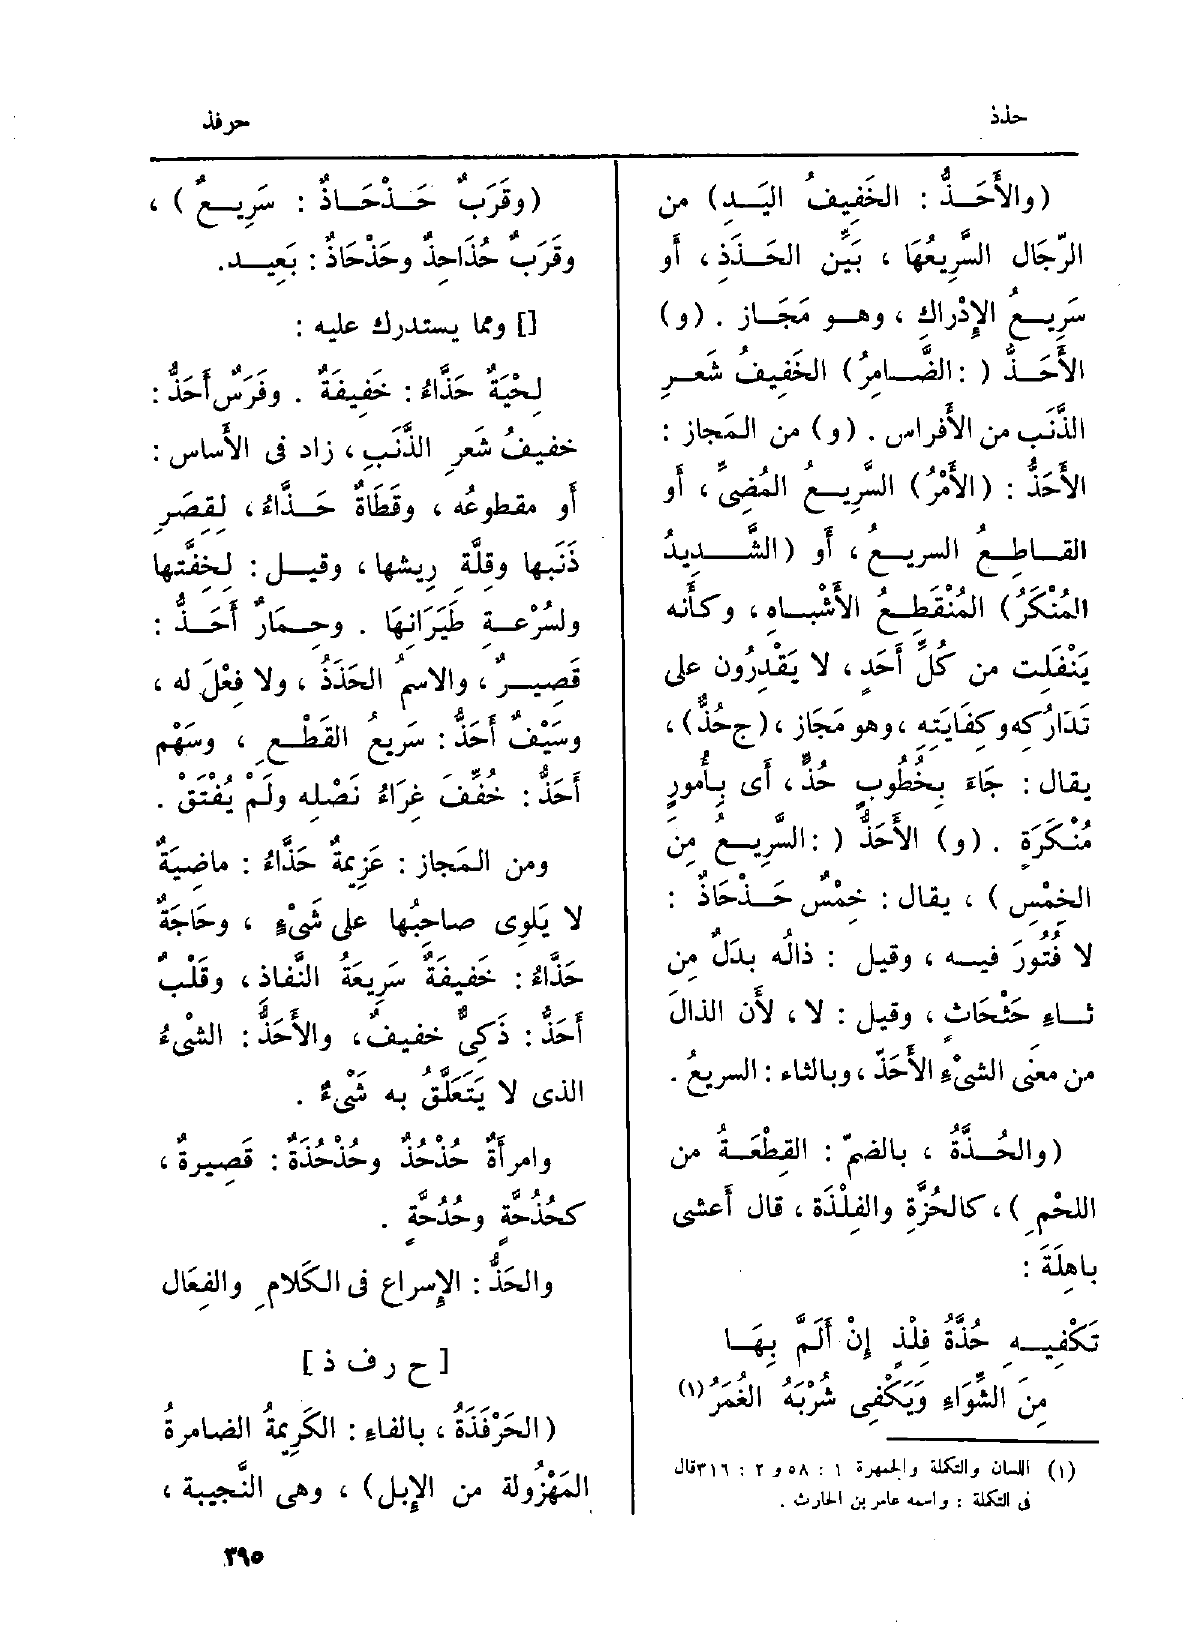 حذذ
حرفذ
(والأَحَــذُّ : الخَفِيفُ اليَــدِ) من
الرِّجَال السَّرِيعُهَا ، بَيِّن الحَــذَذِ ، أَو
سَرِيــعُ الإِدْراكِ ، وهــو مَجَــاز . (و)
الأَحَــذُّ ( :الضَّــامِرُ) الخَفِيفُ شَعــرِ
الذَّنَب من الأَفراس . (و) من المَجاز :
الأَحَذُّ : (الأَمْرُ) السَّرِيــعُ المُضِىِّ ، أَو
القــاطِــعُ السريــعُ ، أَو (الشَّــدِيدُ
المُنْكَرُ) المُنْقَطِــعُ الأَشْبــاهِ ، وكأَنه
يَنْفَلِت من كُلِّ أَحَدٍ ، لا يَقْدِرُون على
تَدَارُكِه وكفَايَتِه ،وهو مَجَاز ، (ج حُذٌّ) ،
يقال : جَاءَ بِخُطُوبٍ حُذٍّ ، أَى بِأُمورٍ
مُنْكَرَةٍ . (و) الأَحَذُّ ( :السَّرِيــعُ مِن
الخِمْسِ ) ، يقال : خِمْسٌ حَــذْحَاذٌ :
لا فُتُورَ فيــه ، وقيل : ذالُه بدَلٌ مِن
ثــاءِ حَثْحَاثٍ ، وقيل : لا ، لأَن الذالَ
من معنَى الشىْءِ الأَحَذِّ ، وبالثاء : السريعُ .
(والحُــذَّةُ ، بالضمّ : القِطْعَــةُ من
اللحْمِ ) ، كالحُزَّةِ والفِلْذَة ، قال أَعشى
باهِلَةَ :
تَكْفِيــهِ حُذَّةُ فِلْذٍ إِنْ أَلَمَّ بِهَــا
مِنَ الشِّوَاءِ وَيَكْفِى شُرْبَهُ الغُمَرُ (١)
(١) اللسان والتكلة والجمهرة ١ : ٥٨ و ٢ : ٣١٦قال
فى التكلة : واسمه عامر بن الحارث .
(وقَرَبٌ حَــذْحَــاذٌ : سَرِيــعٌ ) ،
وقَرَبٌ حُذَاحِذٌ وحَذْحَاذٌ : بَعِيــد .
[] ومما يستدرك عليه :
لِحْيَةٌ حَذَّاءُ : خَفِيفَةٌ . وفَرَسٌ أَحَذُّ :
خفيفُ شَعرِ الذَّنَبِ ، زاد فى الأَساس :
أَو مقطوعُه ، وقَطَاةٌ حَــذَّاءُ ، لِقِصَرِ
ذَنَبِها وقِلَّةِ رِيشِها ، وقيــل : لِخِفَّتها
ولسُرْعــةِ طَيَرَانِهَا . وحِــمَارٌ أَحَــذُّ :
قَصِيــرٌ ، والاسم الحَذَذُ ، ولا فِعْلَ له ،
وسَيْفٌ أَحَذُّ : سَرِيعُ القَطْــعِ ، وسَهْم
أَحَذُّ : خُفِّفَ غِرَاءُ نَصْلِه ولَمْ يُفْتَقْ .
ومن المَجاز : عَزِيمَةٌ حَذَّاءُ : ماضِيَةٌ
لا يَلوِى صاحِبُها على شَىْءٍ ، وحَاجَةٌ
حَذَّاءُ : خَفِيفَةٌ سَرِيعَةُ النَّفاذِ ، وقَلْبٌ
أَحَذُّ : ذَكِىٌّ خفيفٌ ، والأَحَذُّ : الشىْءُ
الذى لا يَتَعَلَّقُ به شَىْءٌ .
وامرأَةٌ حُذْحُذٌ وحُذْحُذَةٌ : قَصِيرة ،
كحُذُحَّةٍ وحُدُحَّةٍ .
والحَذُّ : الإِسراع فى الكَلامِ والفِعَال
[ ح ر ف ذ ]
(الحَرْفَذَةُ ، بالفاءِ : الكَرِيمَةُ الضامرةُ
المَهْزُولة من الإِبل) ، وهى النَّجيبة ،
٣٩٥